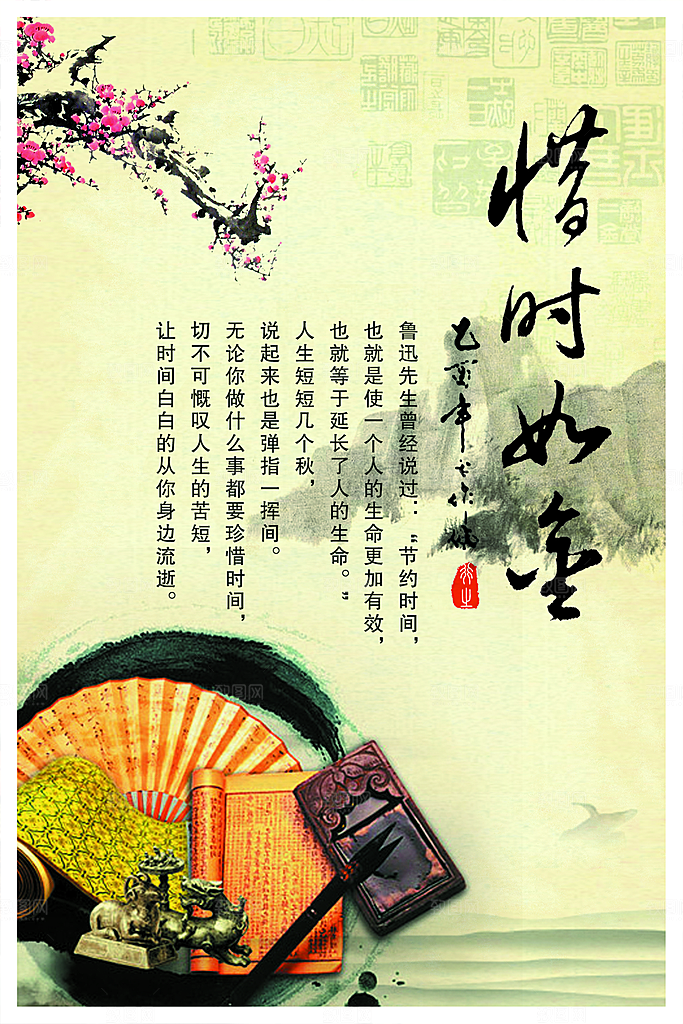 惜时如金
鲁迅先生曾经说过：“节约时间，
也就是使一个人的生命更加有效，
也就等于延长了人的生命。”
人生短短几个秋，
说起来也是弹指一挥间。
无论你做什么事都要珍惜时间，
切不可慨叹人生的苦短，
让时间白白的从你身边流逝。